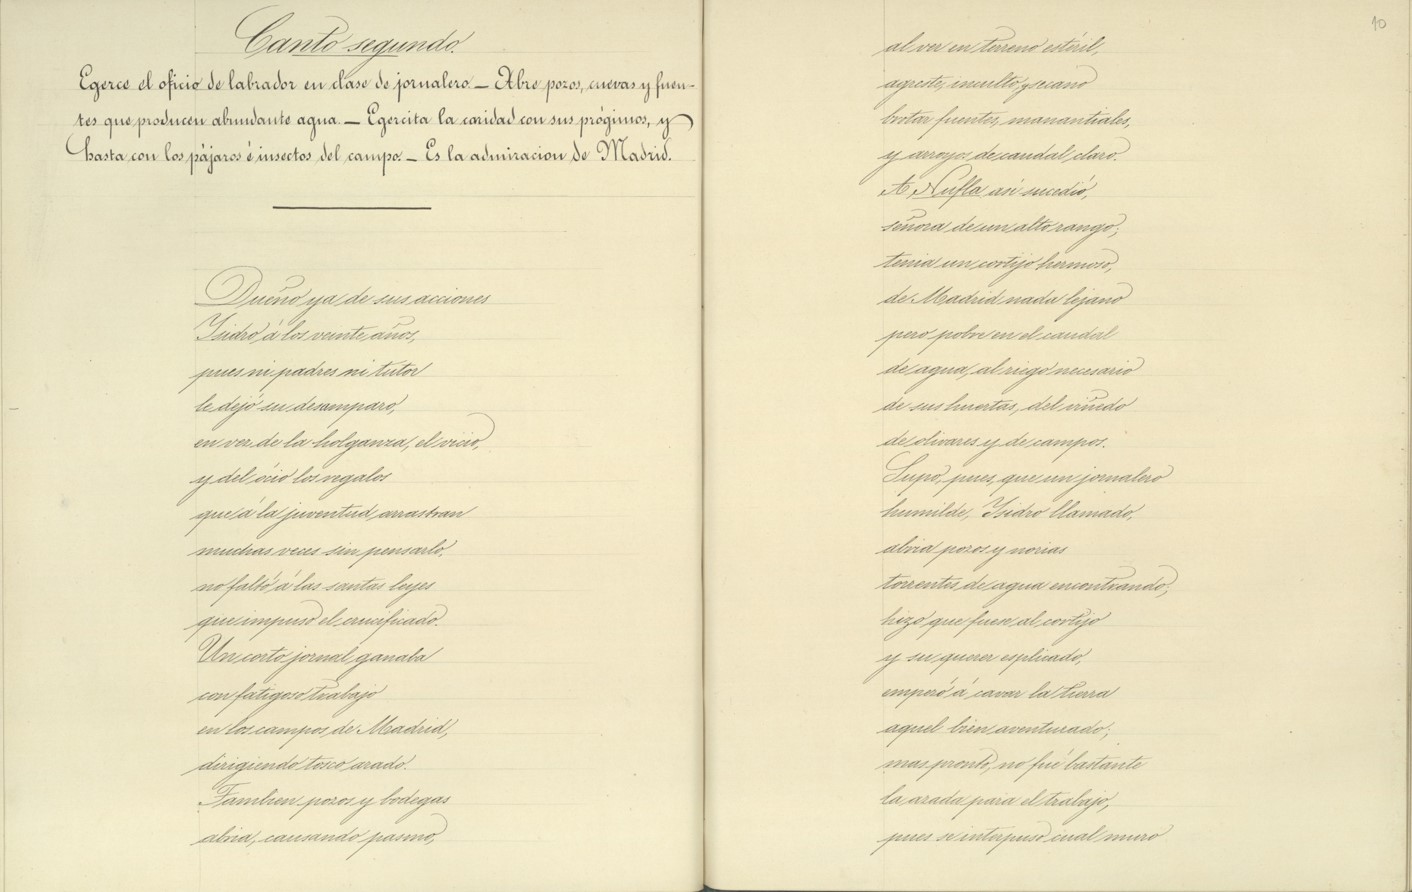 Canto segundo.
Egerce el oficio de labrador en clase de jornalero. — Abre pozos, cuevas y fuen-
tes que producen abundante agua. — Egercita la caridad con sus prógimos, y
hasta con los pájaros é insectos del campo. — Es la admiracion de Madrid.
Dueño ya de sus acciones
Isidro á los veinte años,
pues ni padres ni tutor
le dejó su desamparo,
en vez de la holganza, el vicio,
y del ócio los regalos
que á la juventud arrastran
muchas veces sin pensarlo,
no faltó á las santas leyes
que impuso el crucificado.
Un corto jornal ganaba
con fatigoso trabajo
en los campos de Madrid,
dirigiendo tosco arado.
Tambien pozos y bodegas
abria, causando pasmo,
10
al ver en terreno estéril,
agreste, inculto, y secano
brotar fuentes, manantiales,
y arroyos de caudal claro.
A Nufla asi sucedió,
señora de un alto rango,
tenia un cortijo hermoso,
de Madrid nada lejano
pero pobre en el caudal
de agua, al riego necesario
de sus huertas, del viñedo
de olivares y de campos.
Supo, pues, que un jornalero
humilde, Isidro llamado,
abria pozos y norias
torrentes de agua encontrando,
hizo que fuese al cortijo
y su querer esplicado,
empezó á cavar la tierra
aquel bien aventurado;
mas pronto, no fué bastante
la azada para el trabajo,
pues se interpuso cual muro